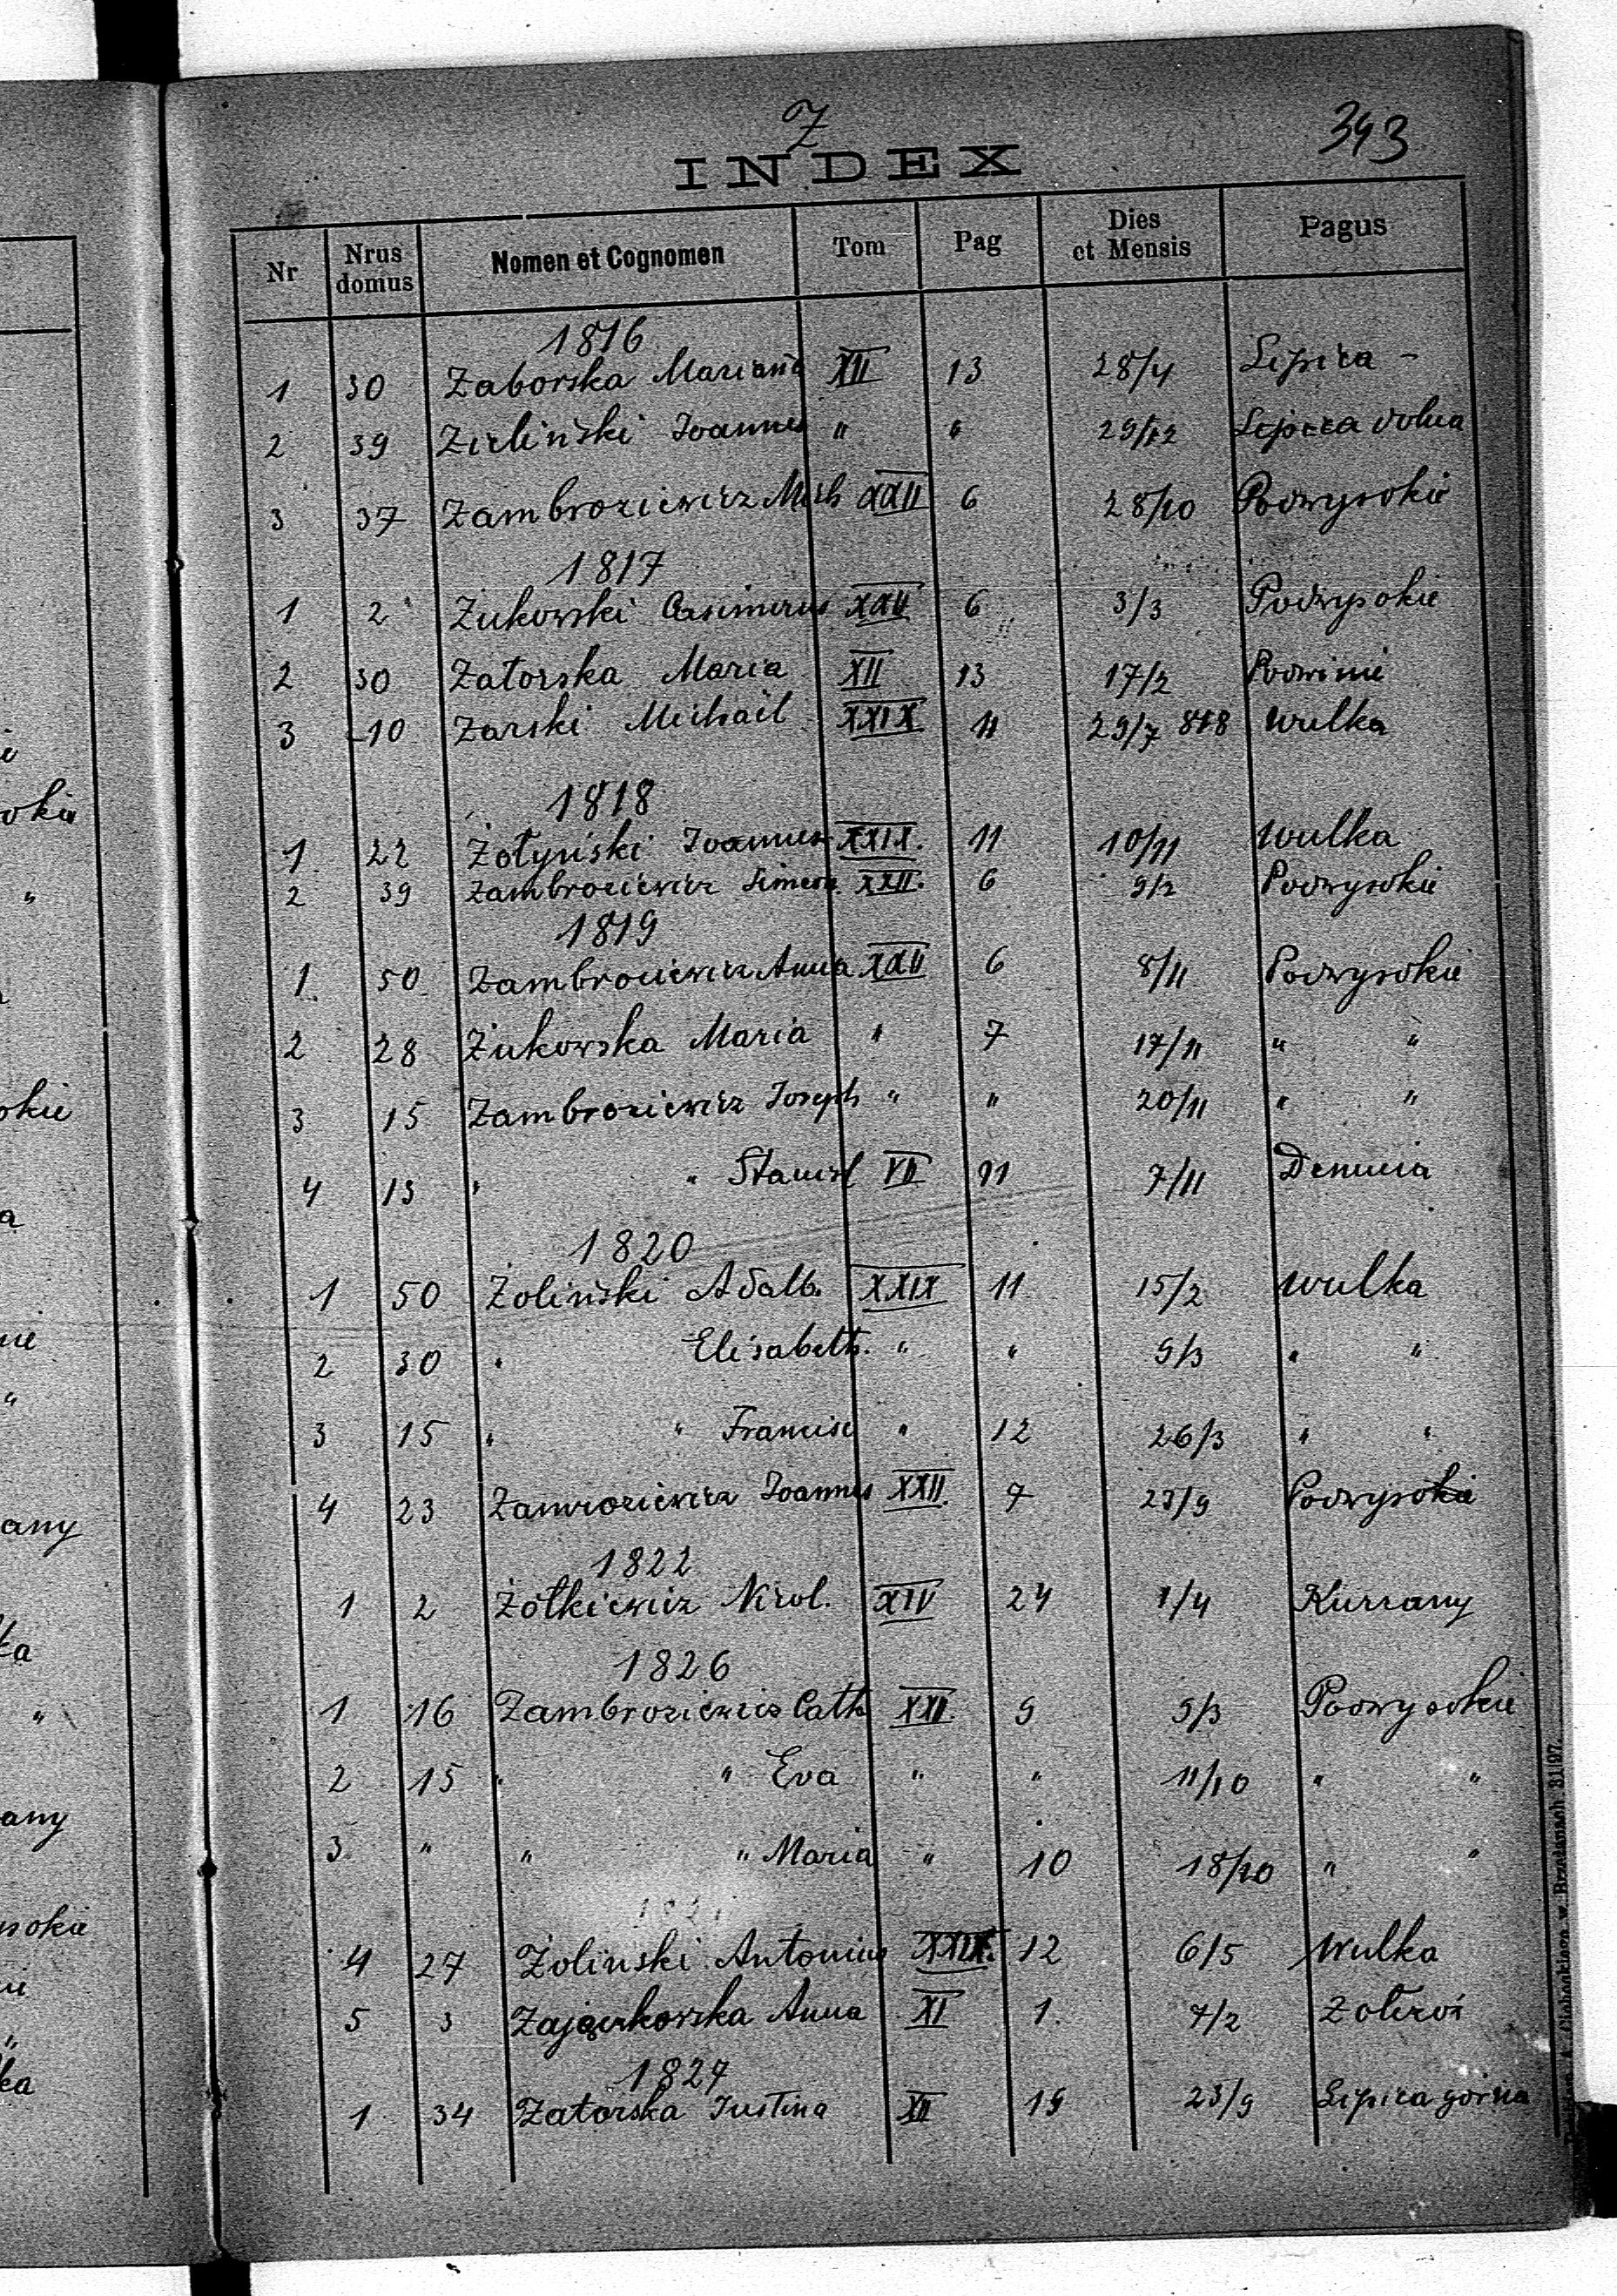 Z
393
INDEX
Nr Nrus domus Nomen et Cognomen Tom Pag Dies et Mensis Pagus
1816
1 30 Zaborska Marianna XII 13 28/4 Lipica –
2 39 Zieliński Joannes " " 29/12 Lipica dolna
3 37 Zambroziewicz Mich XXII 6 28/10 Podwysokie
1817
1 2 Żukowski Casimirus XXII 6 3/3 Podwysokie
2 30 Zatorska Maria XII 13 17/2
3 10 Zarski Michael XXIX. 11 29/7 818 Wulka
1818
1 22 Żołyński Joannes XXIX. 11 10/11 Wulka
2 39 Zambroziewicz Simeon XXII. 6 9/2 Podwysokie
1819
1. 50 Zambroziewicz Anna XXII 6 8/11 Podwysokie
2 28 Żukowska Maria " 7 17/11 " "
3 15 Zambroziewicz Joseph " " 20/11 " "
4 13 " " Stanisl VII 11 7/11 Demnia
1820
1 50 Żoliński Adalb. XXIX 11 15/2 Wulka
2 30 " Elisabeth. " " 9/3 " "
3 15 " " Francisc " 12 26/3 " "
4 23 Zamroziewicz Joannes XXII. 7 23/9 Podwysokie
1822
1 2 Żółkiewicz Nicol. XIV 24 1/4 Kurzany
1826
1 16 Zambroziewicz Cath XXII. 9 9/3 Podwysokie
2 15 " " Eva " " 11/10 " "
3 " " " Maria " 10 18/10 " "
4 27 Żolinski Antonius XXIX. 12 6/5 Wulka
5 3 Zajączkowska Anna XI 1. 7/2
1827
1 34 Zatorska Justina XII 19 23/9 Lipica górna